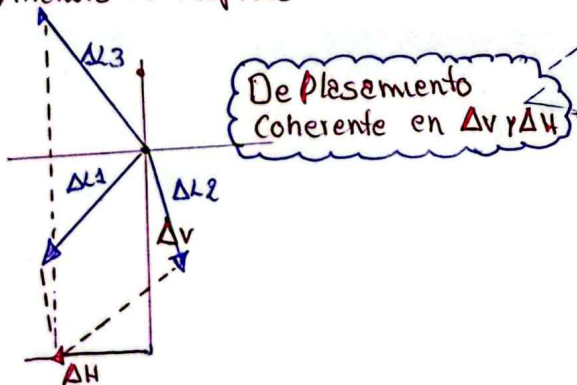 ΔL3
De Plasamiento
Coherente en ΔV y ΔH
ΔL1
ΔL2
ΔV
ΔH